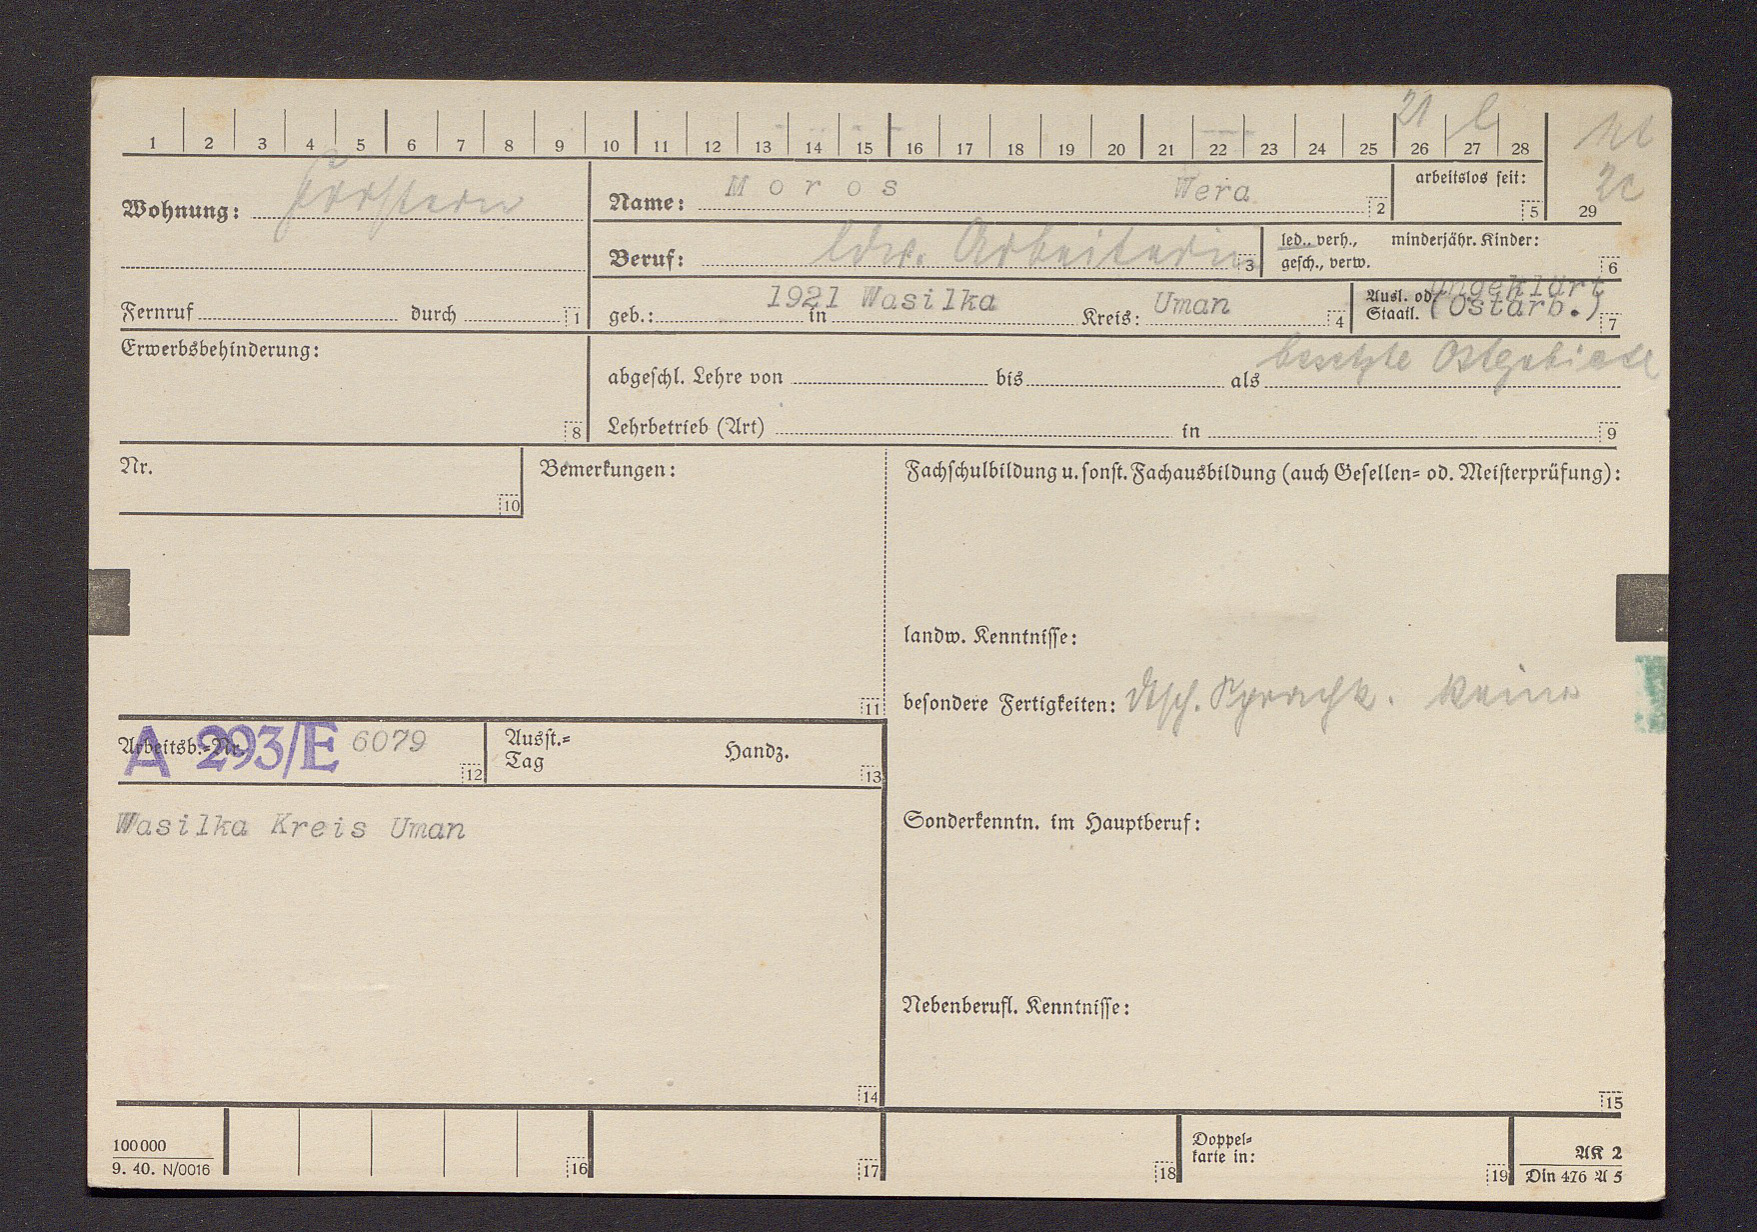 21 l
1 2 3 4 5 6 7 8 9 10 11 12 13 14 15 16 17 18 19 20 21 22 23 24 25 26 27 28
29
Wohnung: Forstern
Name: Moros Wera 2
arbeitslos seit: 5
Beruf: ldw. Arbeiterin 3
led., verh., minderjähr. Kinder:
gesch., verw. 6
Fernruf durch 1
geb.: 1921 in Wasilka Kreis: Uman 4
Ausl. od. ungeklärt
Staatl. (Ostarb.) 7
Erwerbsbehinderung: 8
besetzte Ostgebiete
abgeschl. Lehre von bis als
Lehrbetrieb (Art) in 9
Nr. 10
Bemerkungen: 11
Fachschulbildung u. sonst. Fachausbildung (auch Gesellen- od. Meisterprüfung):
landw. Kenntnisse:
besondere Fertigkeiten: dtsch. Sprachk. keine
Arbeitsb.-Nr. A 293/E 6079 12
Ausst.-
Tag Handz. 13
Wasilka Kreis Uman
14
Sonderkenntn. im Hauptberuf:
Nebenberufl. Kenntnisse:
15
100000
9. 40. N/0016
16 17 18
Doppel-
karte in: 19
AK 2
Din 476 A 5